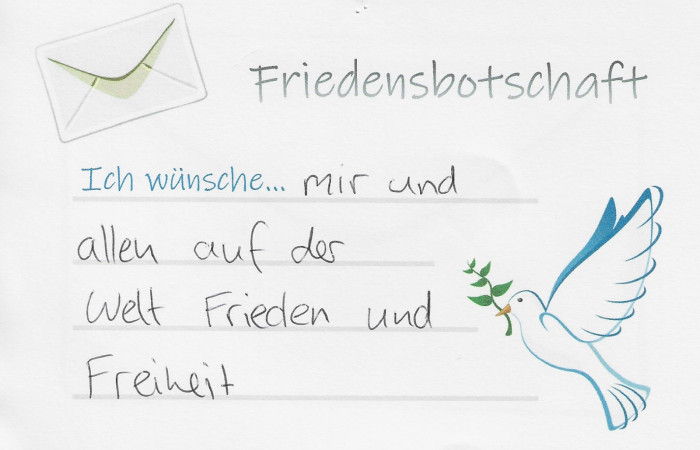 Friedensbotschaft
Ich wünsche... mir und
allen auf der
Welt Frieden und
Freiheit